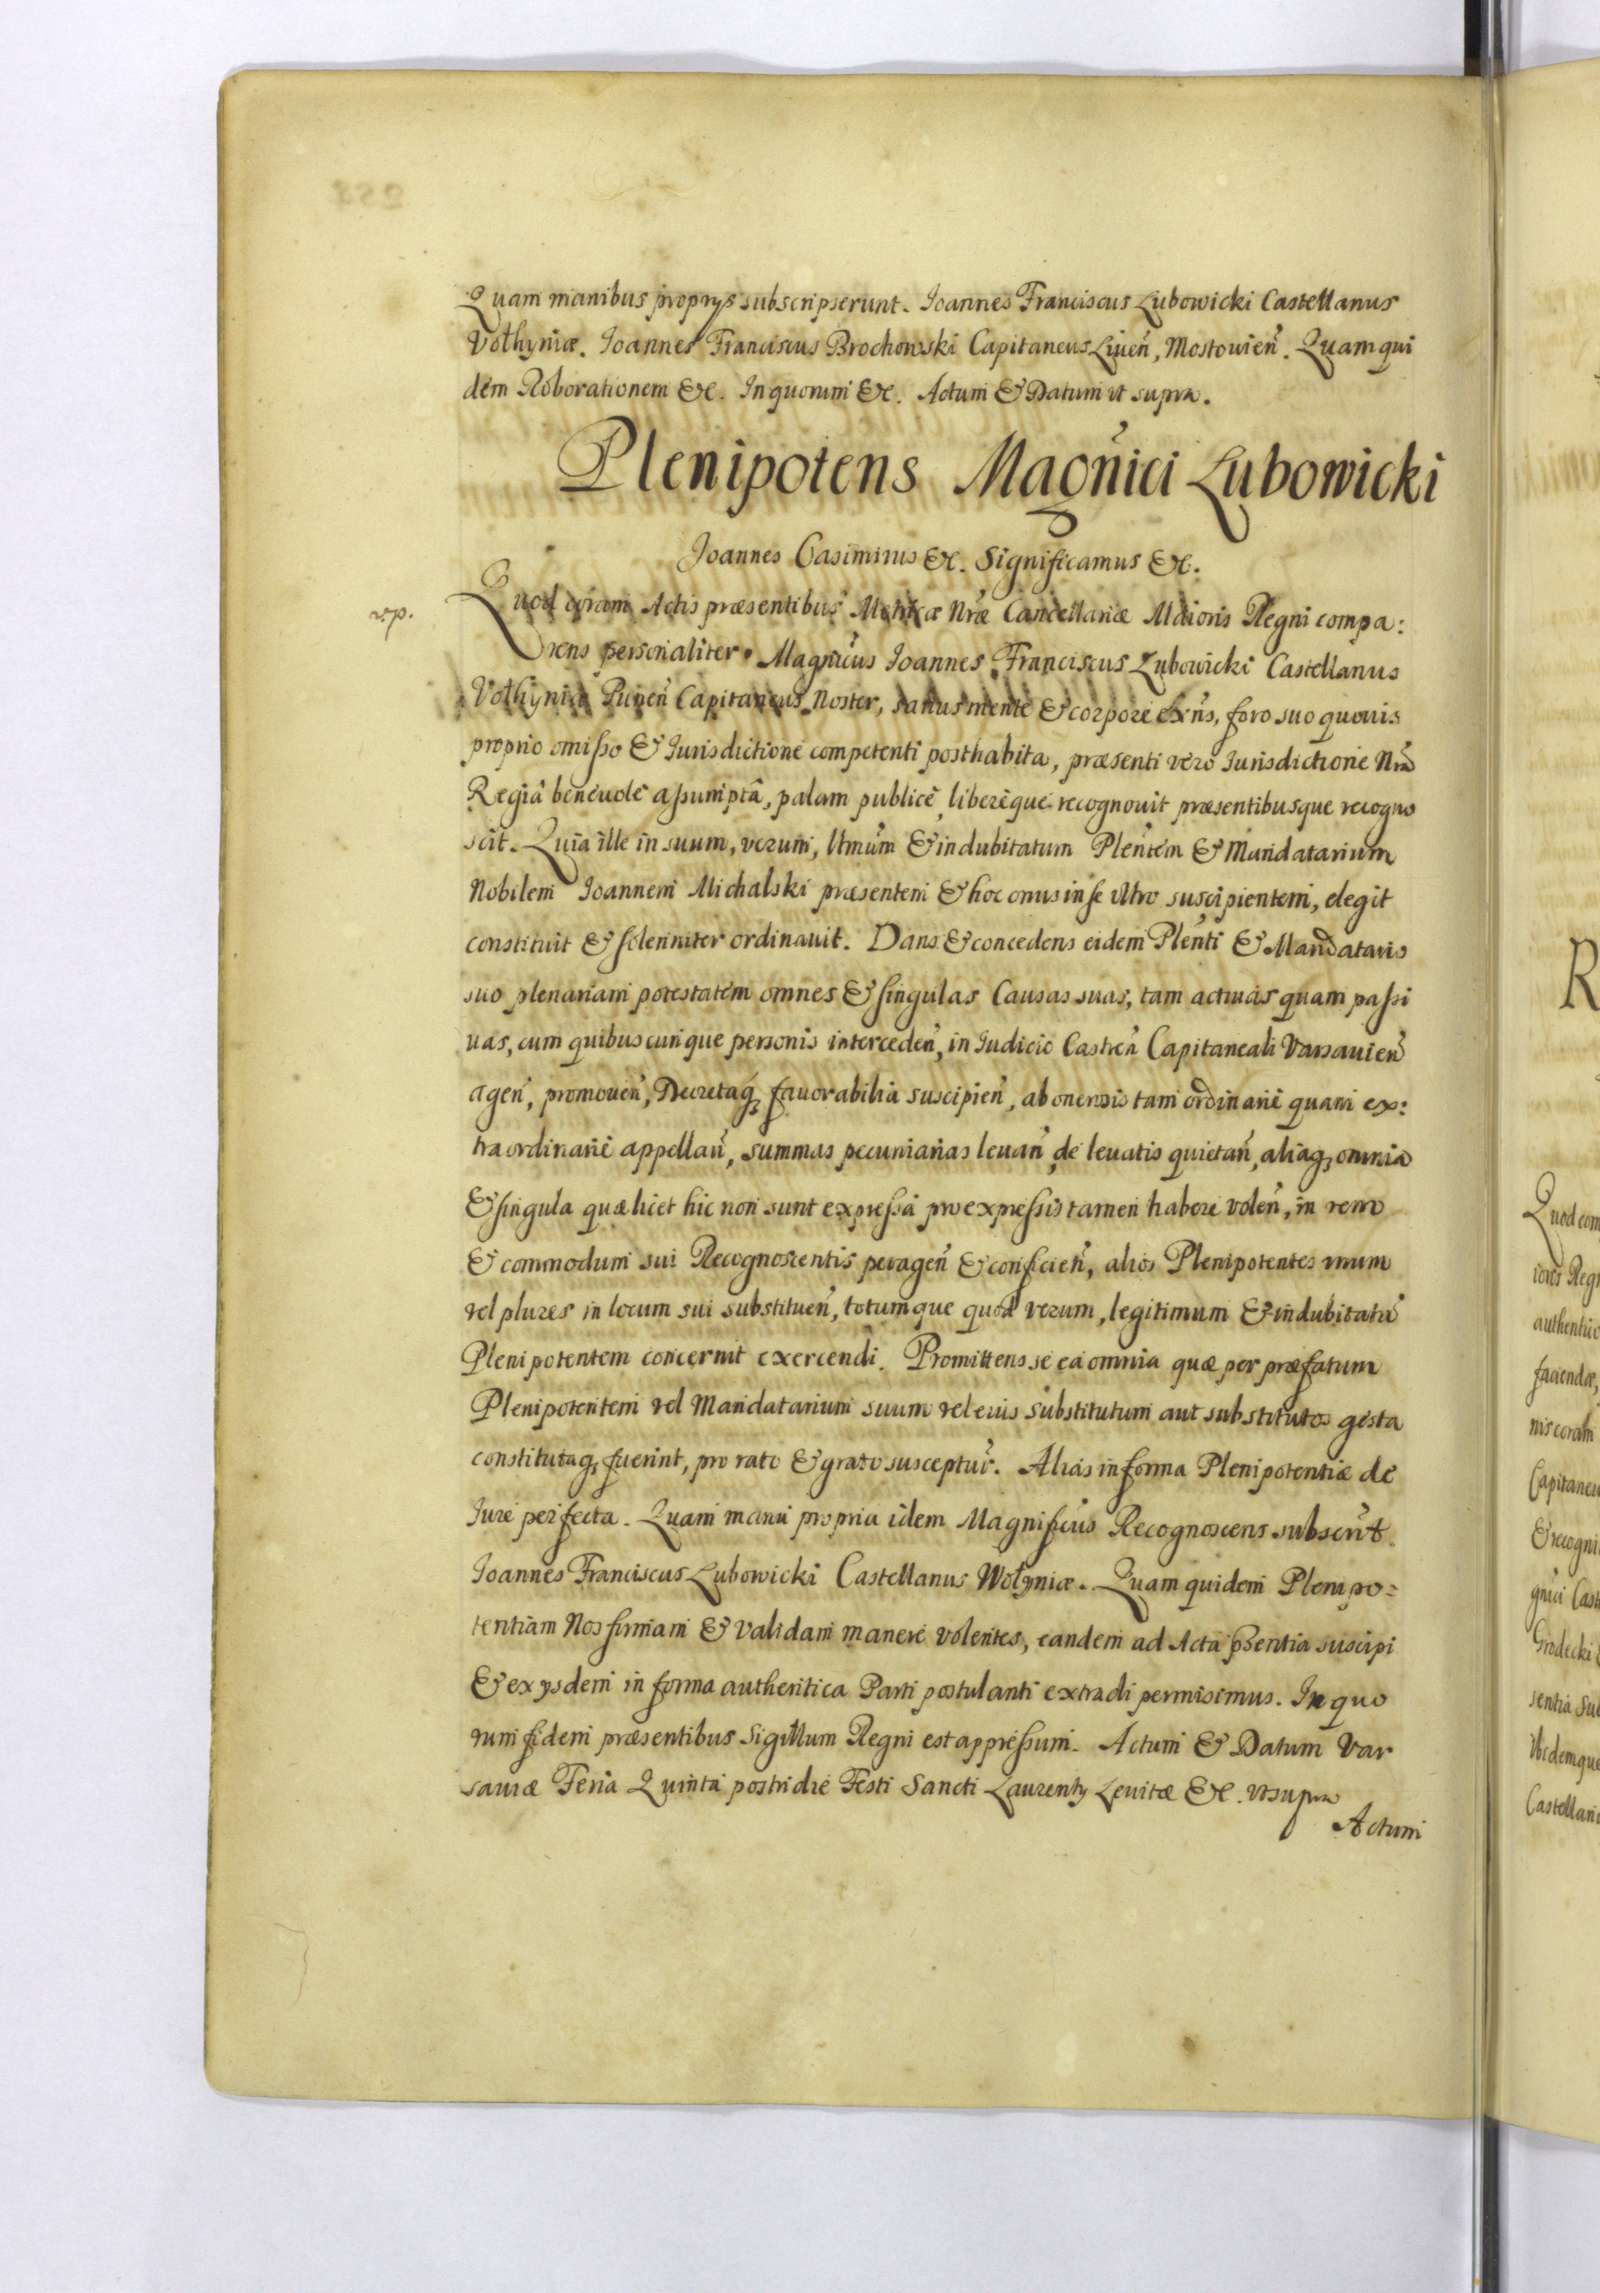 Quam manibus proprys subscripserunt. Ioannes Franciscus Lubowicki Castellanus
Vołhyniæ. Ioannes Franciscus Brochowski Capitaneus Liuen̄, Mostouien̄. Quam qui
dem Roborationem &c. In quorum &c. Actum & Datum ut supra.
Plenipotens Magn̄ici Lubowicki
Joannes Casimirus &c. Significamus &c.
rp.
Quod coram Actis præsentibus Metricæ Nr̄æ Cancellariæ Maioris Regni compa:
rens personaliter Magnic̄us Joannes Franciscus Lubowicki Castellanus
Vołhyniæ Pinen̄ Capitaneus Noster, sanus mente & corpore exn̄s, foro suo quouis
proprio omisso & Jurisdictione competenti posthabita, præsenti vero Iurisdictione Nr̄a
Regiâ beneuole assumptâ, palam publicè, liberèque recognouit præsentibusque recogno
scit. Quia ille in suum, verum, ltmūm & indubitatum Plen̄tem & Mandatarium
Nobilem Joannem Michalski præsentem & hoc onus in se vltro suscipientem, elegit
constituit & solenniter ordinauit. Dans & concedens eidem Plen̄ti & Mandatario
suo plenariam potestatem omnes & singulas Causas suas, tam actiuas quam passi
uas, cum quibuscunque personis interceden̄, in Iudicio Castren̄ Capitaneali Varsauien̄
agen̄, promouen̄, Decretaq, fauorabilia suscipien̄, ab onerosis tam ordinariè quam ex:
traordinariè appellan̄, summas pecuniarias leuan̄, de leuatis quietan̄, aliaq, omnia
& singula quæ licet hic non sunt expressa pro expressis tamen habere volen̄, in rem
& commodum sui Recognoscentis peragen̄ & conficien̄, alios Plenipotentes vnum
vel plures in locum sui substituen̄, totumque quod verum, legitimum & indubitatū
Plenipotentem concernit exercendi. Promittens se ea omnia quæ per præfatum
Plenipotentem vel Mandatarium suum vel eius substitutum aut substitutos gesta
constitutaq, fuerint, pro rato & grato susceptur̄. Alias in forma Plenipotentiæ de
Jure perfecta. Quam manu propria idem Magnific̄us Recognoscens subscr̄t.
Joannes Franciscus Lubowicki Castellanus Wołyniæ. Quam quidem Plenipo=
tentiam Nos firmam & validam manere volentes, eandem ad Acta pṡentia suscipi
& ex ysdem in forma authentica Parti postulanti extradi permisimus. In quo
rum fidem præsentibus Sigillum Regni est appressum. Actum & Datum Var
sauiæ Feria Quinta postridie Festi Sancti Laurenty Leuitæ &c. vt supra
Actum